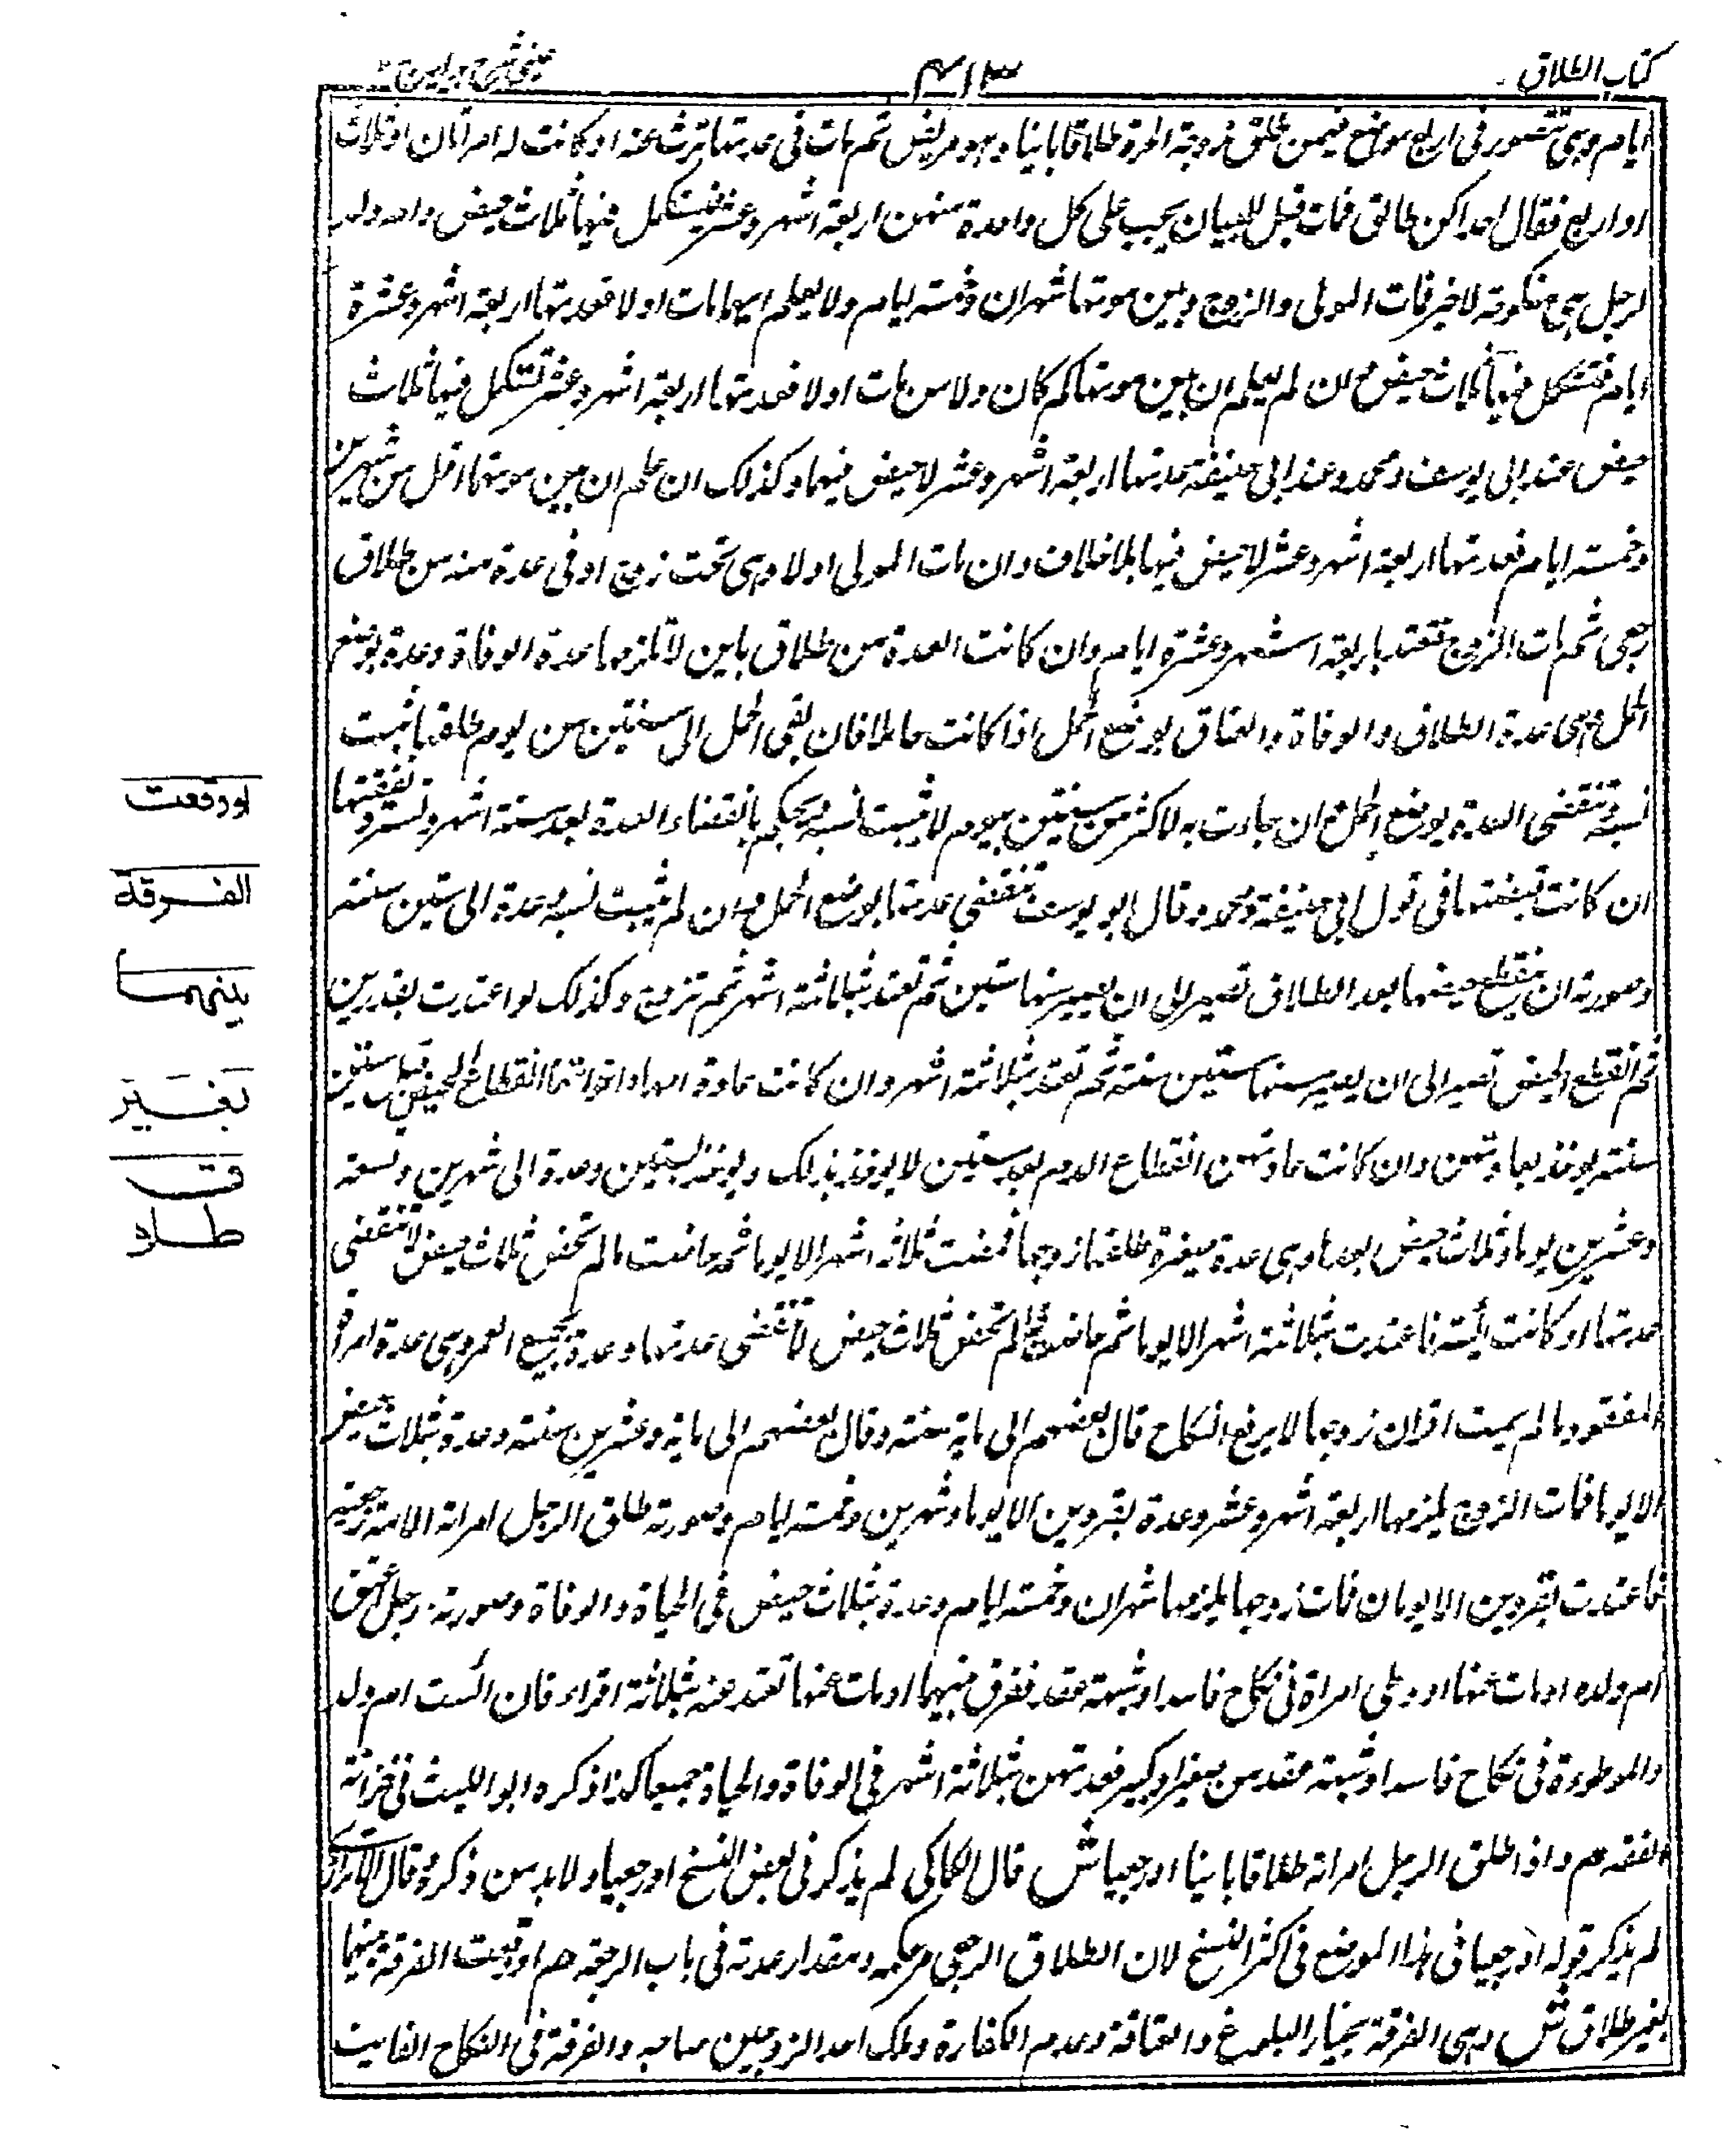 كتاب الطلاق
٤١٣
ايام وهى تتصور فى اربع مواضع فيمن طلق زوجة الحرة طلاقا باينا وهو مريض ثم مات فى عدتها ترث عنه او كانت له امراتان او ثلاث
او اربع فقال احداكن طالق فمات قبل البيان يجب على كل واحدة منهن اربعة اشهر وعشر تستكمل فيها ثلاث حيض وام ولد
لرجل هى منكوحة لاخر فمات المولى والزوج وبين موتهما شهران وخمسة ايام ولا يعلم ايهما مات اولا فعدتها اربعة اشهر وعشرة
ايام فتستكمل فيها ثلاث حيض وان لم يعلم ان بين موتهما كم كان ولا من مات اولا فعدتها اربعة اشهر وعشر تستكمل فيها ثلاث
حيض عند ابى يوسف ومحمد وعند ابى حنيفة عدتها اربعة اشهر وعشر لا حيض فيها وكذلك ان علم ان بين موتهما اقل من شهرين
وخمسة ايام فعدتها اربعة اشهر وعشر لا حيض فيها بلا خلاف وان مات المولى اولا وهى تحت زوج او فى عدة منه من طلاق
رجعى ثم مات الزوج تعتد باربعة اشهر وعشرة ايام وان كانت العدة من طلاق باين لا تلزمها عدة الوفاة وعدة بوضع
الحمل وهى عدة الطلاق والوفاة والعتاق بوضع الحمل اذا كانت حاملا فان بقى الحمل الى سنتين من يوم طلقها ثبت
نسبه وتنقضى العدة بوضع الحمل وان جاءت به لاكثر من سنتين بيوم لا يثبت نسبه ويحكم بانقضاء العدة بعد ستة اشهر وتسترد نفقتها
ان كانت قبضتها فى قول ابى حنيفة ومحمد وقال ابو يوسف تنقضى عدتها بوضع الحمل وان لم يثبت نسبه وعدة الى ستين سنة
وصورته ان ينقطع حيضها بعد الطلاق تصبر الى ان يصير سنها ستين ثم تعتد بثلاثة اشهر ثم تزوج وكذلك لو اعتدت بقدرين
ثم انقطع الحيض تصبر الى ان يصير سنها ستين سنة ثم تعتد بثلاثة اشهر وان كانت عادة امها واخواتها انقطاع الحيض قبل ستين
سنة يوخذ بعادتهن وان كانت عادتهن انقطاع الدم بعد ستين لا يوخذ بذلك ويوخذ بستين وعدة الى شهرين وتسعة
وعشرين يوما وثلاث حيض بعدها وهى عدة صغيرة طلقها زوجها فمضت ثلاثة اشهر الا يوما ثم حاضت ما لم تحض ثلاث حيض لا تنقضى
عدتها او كانت آئسة فاعتدت بثلاثة اشهر الا يوما ثم حاضت ما لم تحض ثلاث حيض لا تنقضى عدتها وعدة بجميع العمر وهى عدة امراة
المفقود ما لم يمت اقران زوجها لا يرفع النكاح قال بعضهم الى ماية سنة وقال بعضهم الى ماية وعشرين سنة وعدة بثلاث حيض
الا يوما فمات الزوج يلزمها اربعة اشهر وعشر وعدة بقروين الا يوما وشهرين وخمسة ايام وصورته طلق الرجل امراته الامة رجعية
فاعتدت بقروين الا يومان فمات زوجها يلزمها شهران وخمسة ايام وعدة بثلاث حيض فى الحياة والوفاة وصورته رجل اعتق
ام ولده او مات عنها او وطى امراة فى نكاح فاسد او شبهة عقد ففرق بينهما او مات عنها تعتد عنه بثلاثة اقراء فان آئست ام ولد
والموطوءة فى نكاح فاسد او شبهة عقد من صغير او كبير فعدتهن بثلاثة اشهر فى الوفاة والحياة جميعا كذا ذكره ابو الليث فى خزانة
الفقه م واذا طلق الرجل امراته طلاقا باينا او رجعيا ش قال الكاكى لم يذكر فى بعض النسخ او رجعيا ولا بد من ذكره وقال الاترازى
لم يذكر قوله او رجعيا فى هذا الموضع فى اكثر النسخ لان الطلاق الرجعى مر حكمه ومقدار عدته فى باب الرجعة م او وقعت الفرقة بينهما
بغير طلاق ش وهى الفرقة بخيار البلوغ والعتاقة وعدم الكفارة وملك احد الزوجين صاحبه والفرقة فى النكاح الفاسد
او وقعت
الفرقة
بينهما
بغير
طلاق